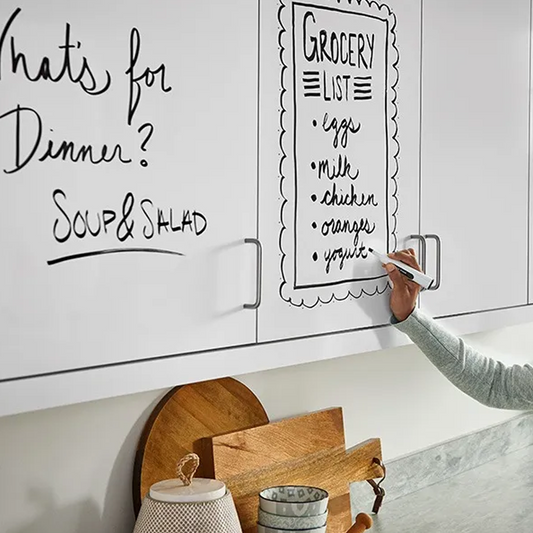 What's for
Dinner?
SOUP & SALAD
GROCERY
LIST
• eggs
• milk
• chicken
• oranges
• yogurt